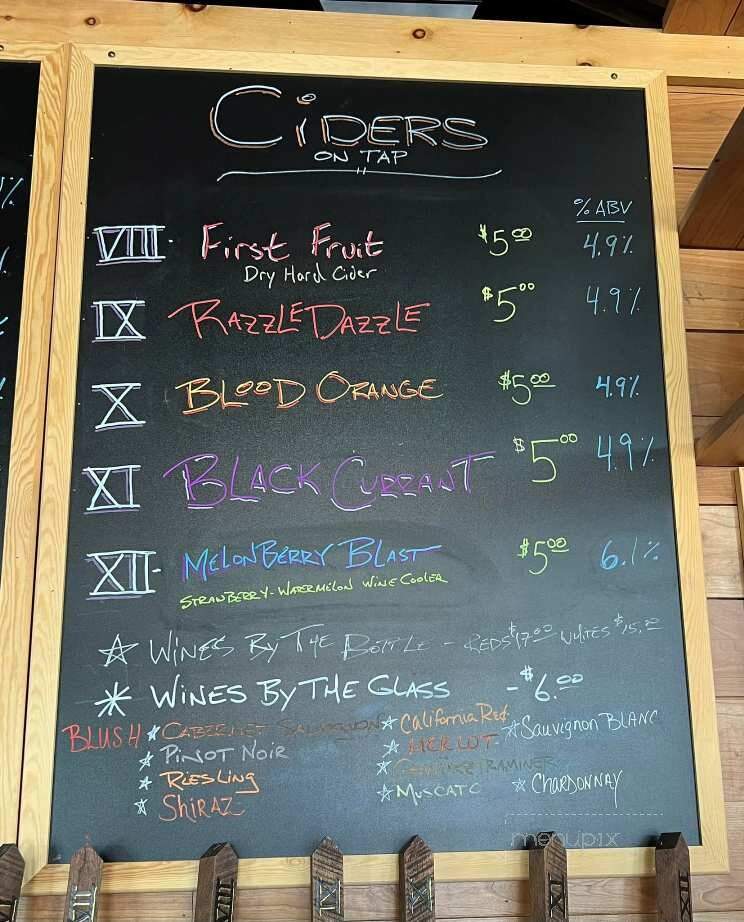 CiDERS
ON TAP
% ABV
VIII. First Fruit $5.00 4.9%
Dry Hard Cider
IX RAZZLE DAZZLE $5.00 4.9%
X BLOOD ORANGE $5.00 4.9%
XI BLACK CURRANT $5.00 4.9%
XII- MELONBERRY BLAST $5.00 6.1%
STRAWBERRY-WATERMELON WINE COOLER
☆ WINES BY THE BOTTLE - REDS $17.00 WHITES $15.00
* WINES BY THE GLASS - $6.00
BLUSH ☆ CABERNET SAUVIGNON ☆ California Red ☆ Sauvignon BLANC
☆ PINOT NOIR ☆ MERLOT
☆ RIESLING ☆ GEWURZTRAMINER
☆ SHIRAZ ☆ MUSCATO ☆ CHARDONNAY
menupix
VII VIII IX X XI XII